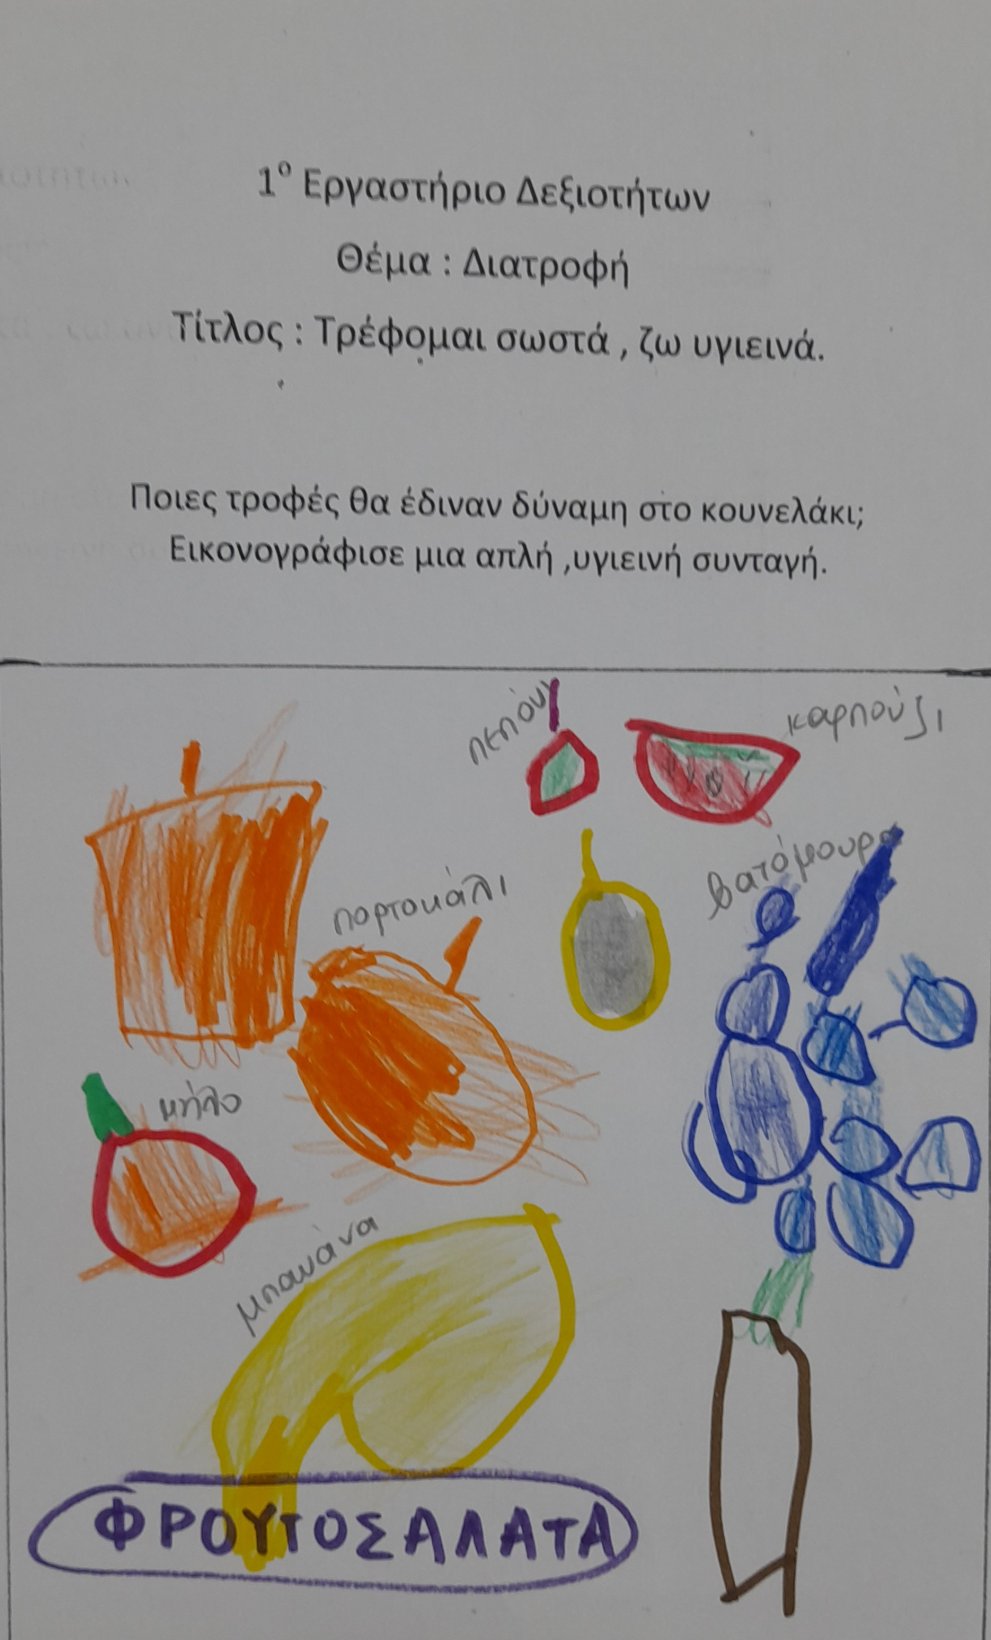 1ο Εργαστήριο Δεξιοτήτων
Θέμα : Διατροφή
Τίτλος : Τρέφομαι σωστά , ζω υγιεινά.
Ποιες τροφές θα έδιναν δύναμη στο κουνελάκι;
Εικονογράφισε μια απλή ,υγιεινή συνταγή.
πεπόνι
καρπούζι
πορτοκάλι
βατόμουρα
μήλο
μπανάνα
ΦΡΟΥΤΟΣΑΛΑΤΑ